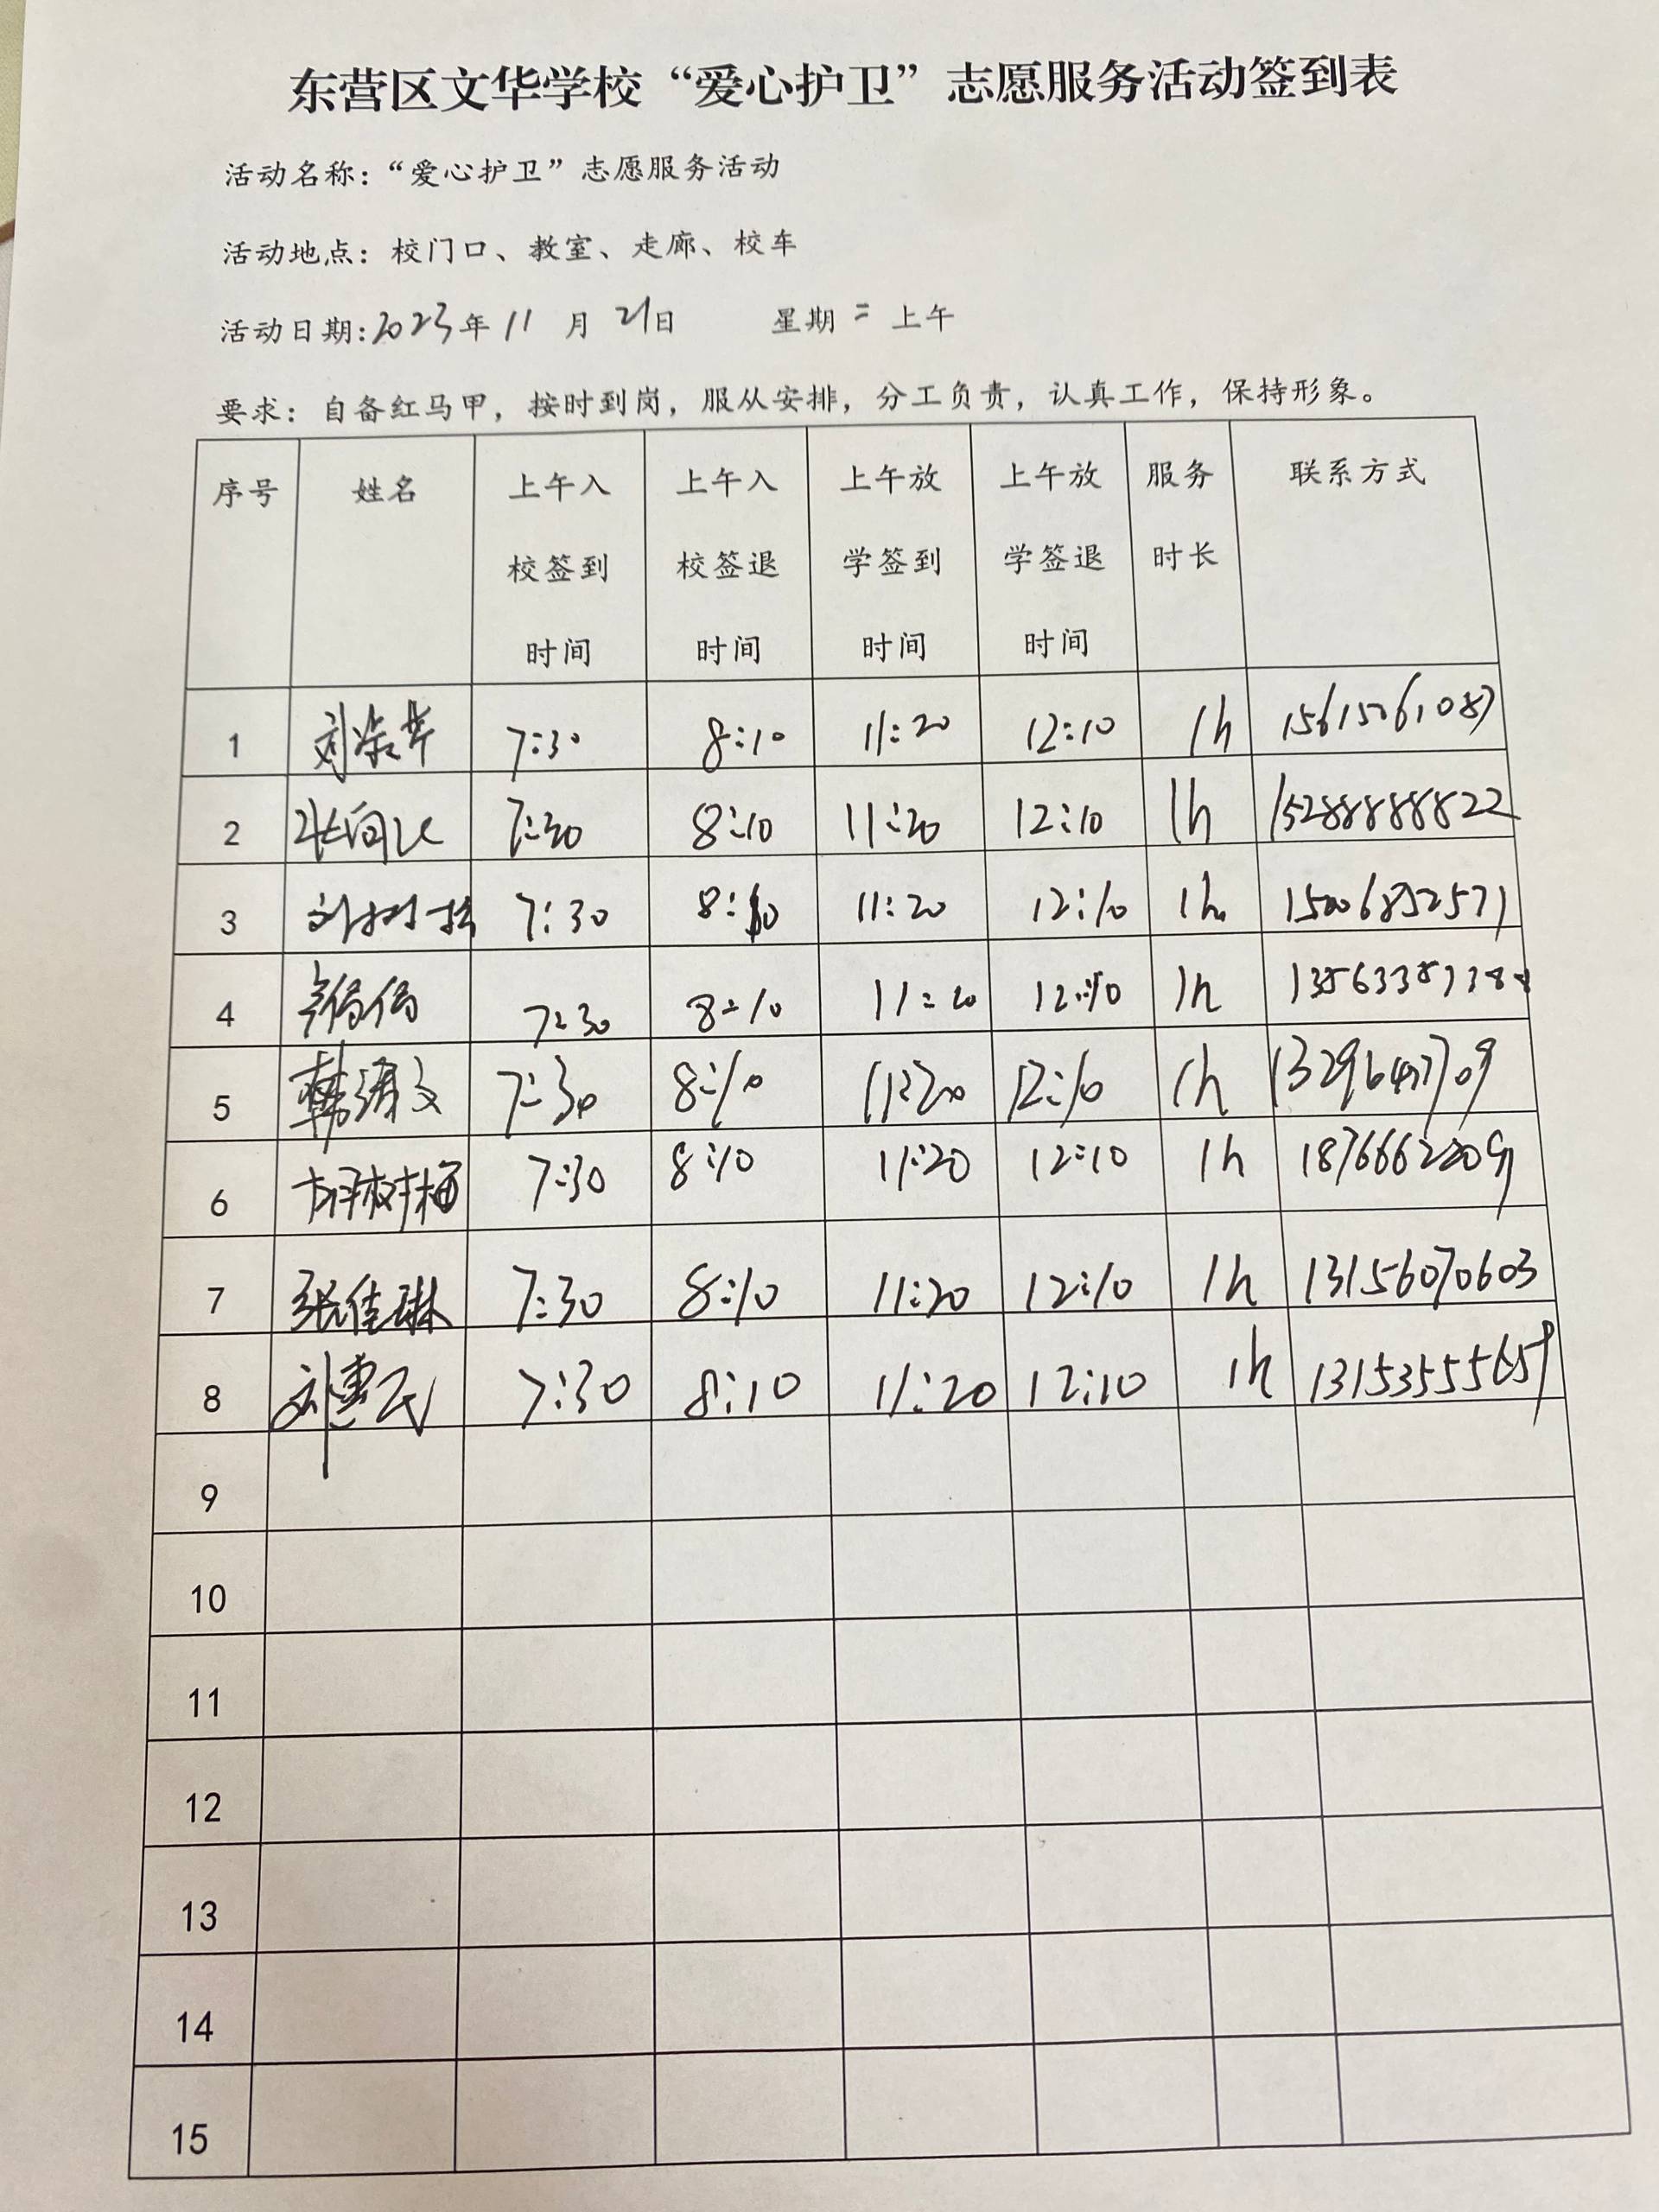 东营区文华学校“爱心护卫”志愿服务活动签到表
活动名称：“爱心护卫”志愿服务活动
活动地点：校门口、教室、走廊、校车
活动日期：2023年11月21日 星期二上午
要求：自备红马甲，按时到岗，服从安排，分工负责，认真工作，保持形象。
序号 姓名 上午入校签到时间 上午入校签退时间 上午放学签到时间 上午放学签退时间 服务时长 联系方式
1 刘 7:30 8:10 11:20 12:10 1h 15615061087
2 7:30 8:10 11:20 12:10 1h 15288888822
3 刘树 7:30 8:10 11:20 12:10 1h 15006852571
4 7:30 8:10 11:20 12:10 1h
5 韩 7:30 8:10 11:20 12:10 1h
6 胡树梅 7:30 8:10 11:20 12:10 1h 18766622091
7 张佳琳 7:30 8:10 11:20 12:10 1h 13156070603
8 刘惠民 7:30 8:10 11:20 12:10 1h 13153555659
9
10
11
12
13
14
15